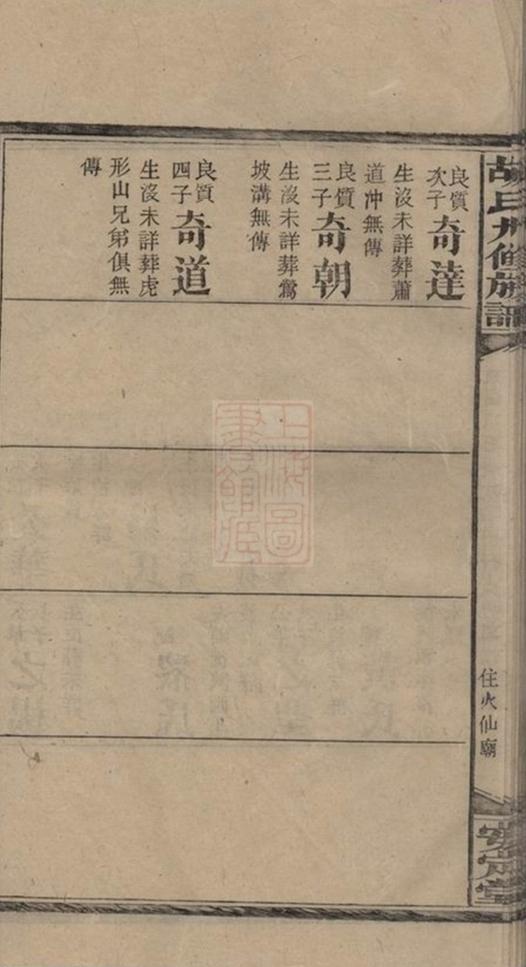 胡氏九修族譜
住火仙廟
安定堂
良質次子 奇達
生沒未詳葬蕭
道冲無傳
良質三子 奇朝
生沒未詳葬鶯
坡溝無傳
良質四子 奇道
生沒未詳葬虎
形山兄弟俱無
傳
上海圖
書館藏